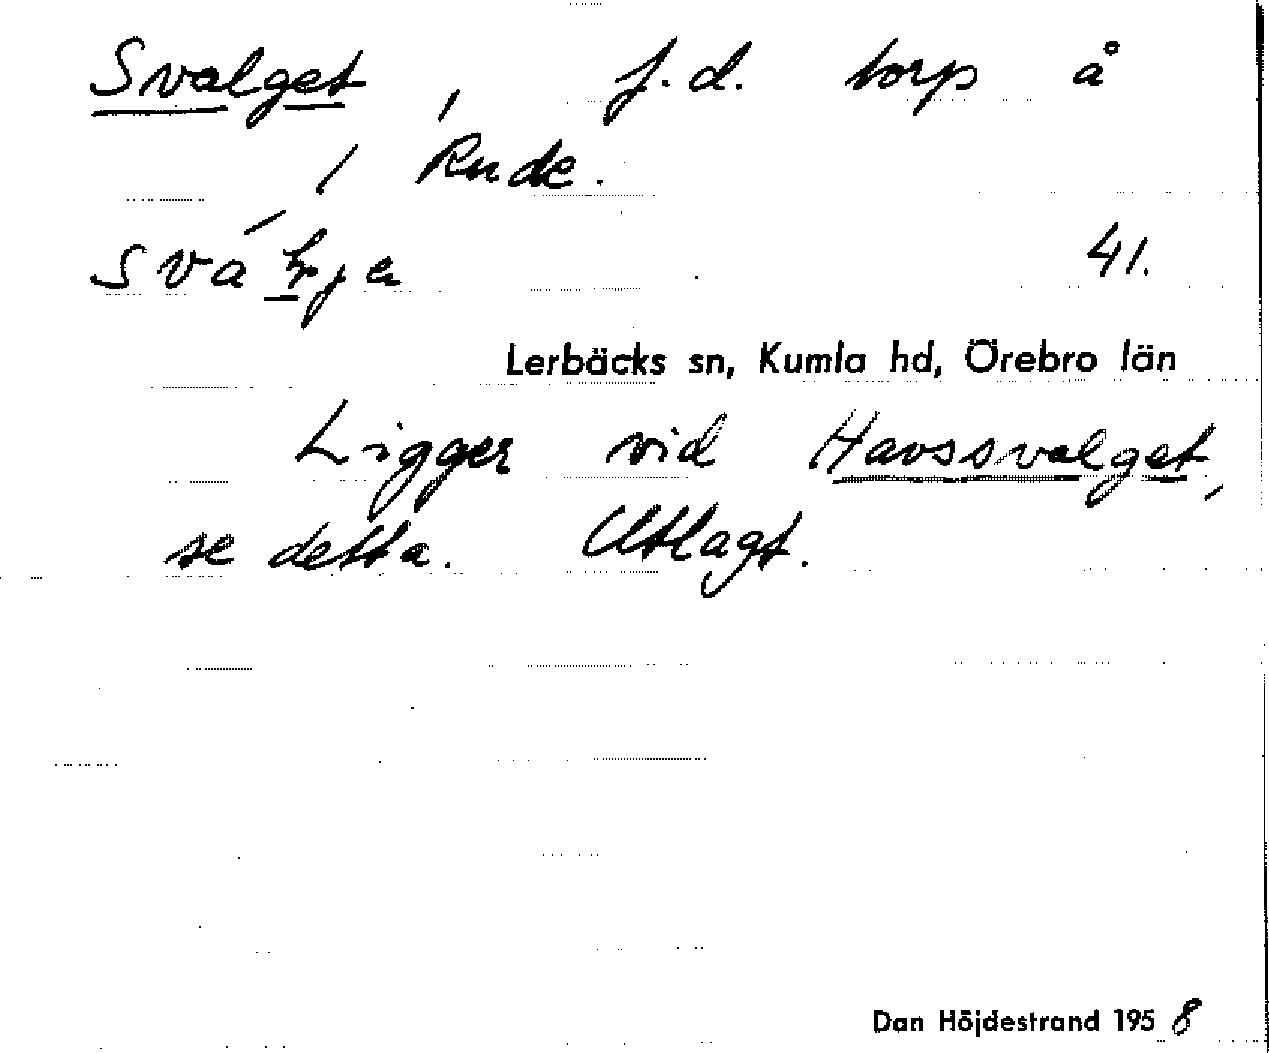 Svalget, f.d. torp å
Rude.
41.
Lerbäcks sn, Kumla hd, Örebro län
Ligger vid Havssvalget,
se detta. Utlagt.
Dan Höjdestrand 1958